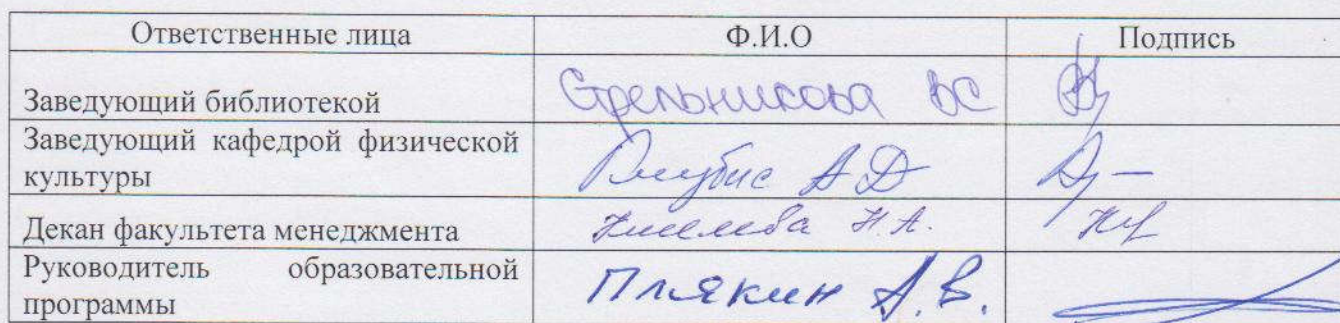 Ответственные лица Ф.И.О Подпись
Заведующий библиотекой Стрельникова ВС
Заведующий кафедрой физической
культуры А Д
Декан факультета менеджмента Н.А.
Руководитель образовательной
программы Плякин А.В.